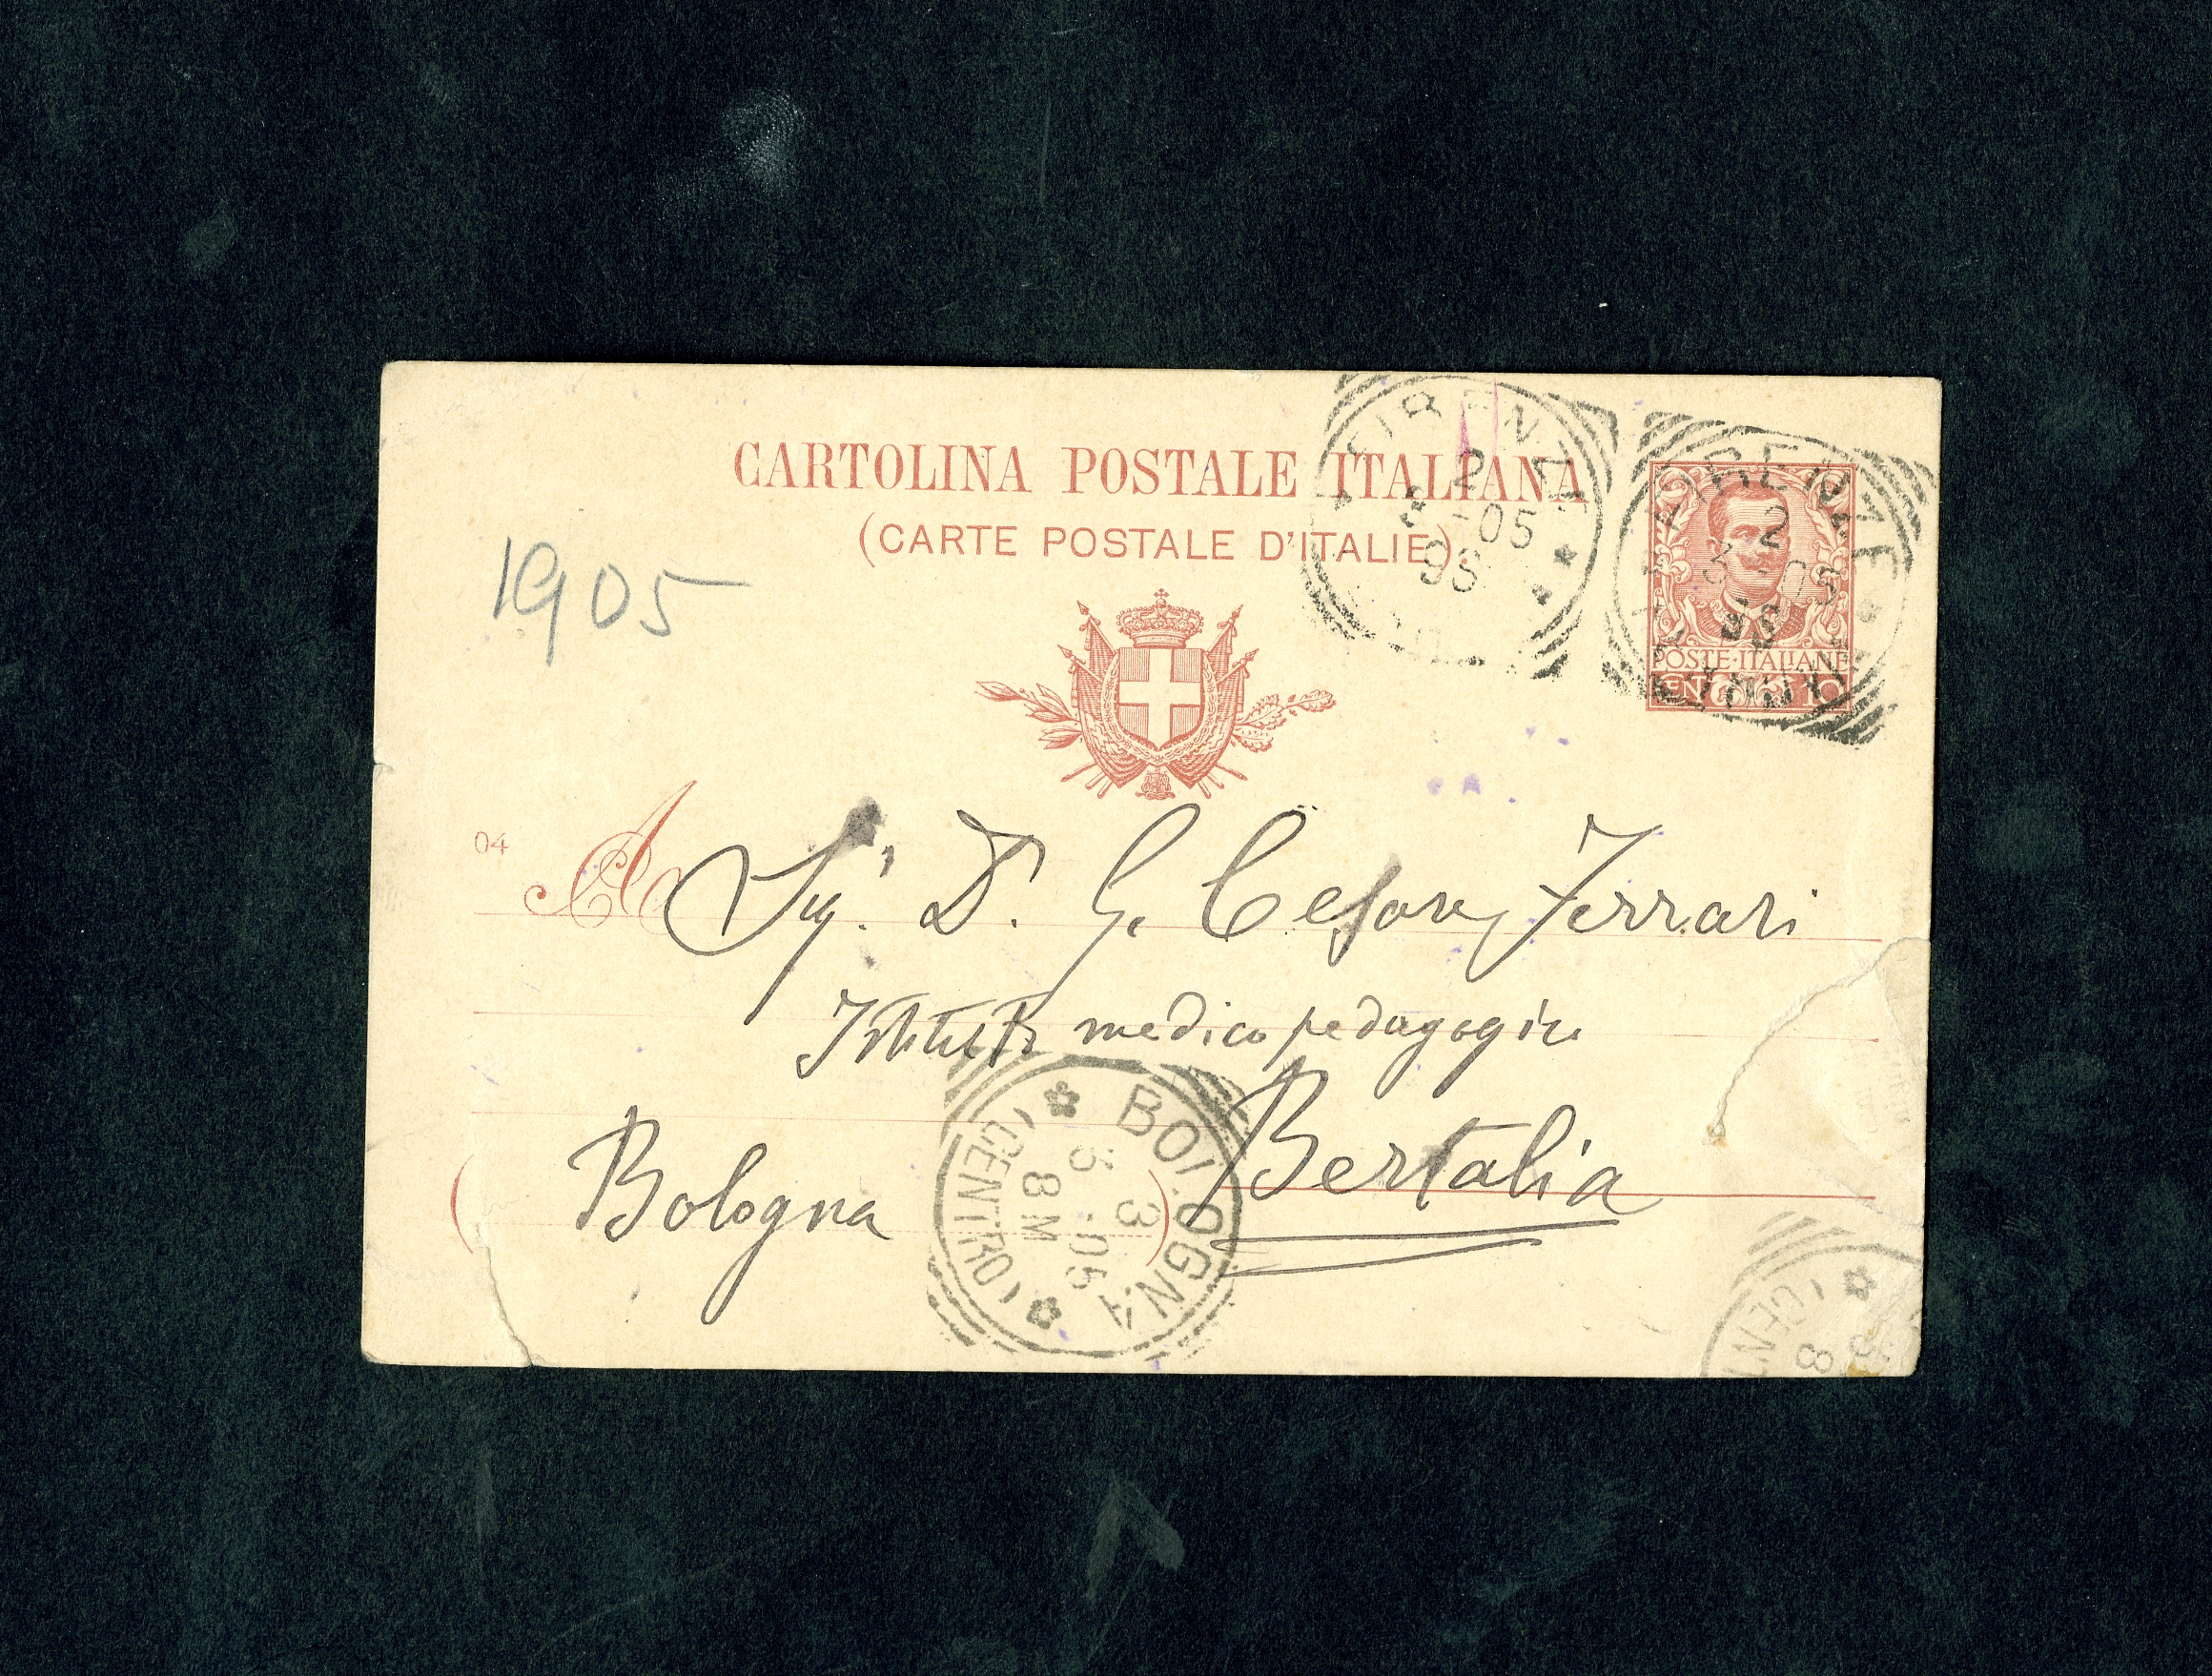 CARTOLINA POSTALE ITALIANA
(CARTE POSTALE D'ITALIE).
FIRENZE
2
3 -05
9S
FIRENZE
2
3 -05
9S
POSTE·ITALIANE
CENT 10
1905
04
A
Sigr. Dr. G. Cesare Ferrari
Istituto medico pedagogico
Bertalia
(Bologna)
BOLOGNA
3
3 -05
8M
(CENTRO)
(CENT
8